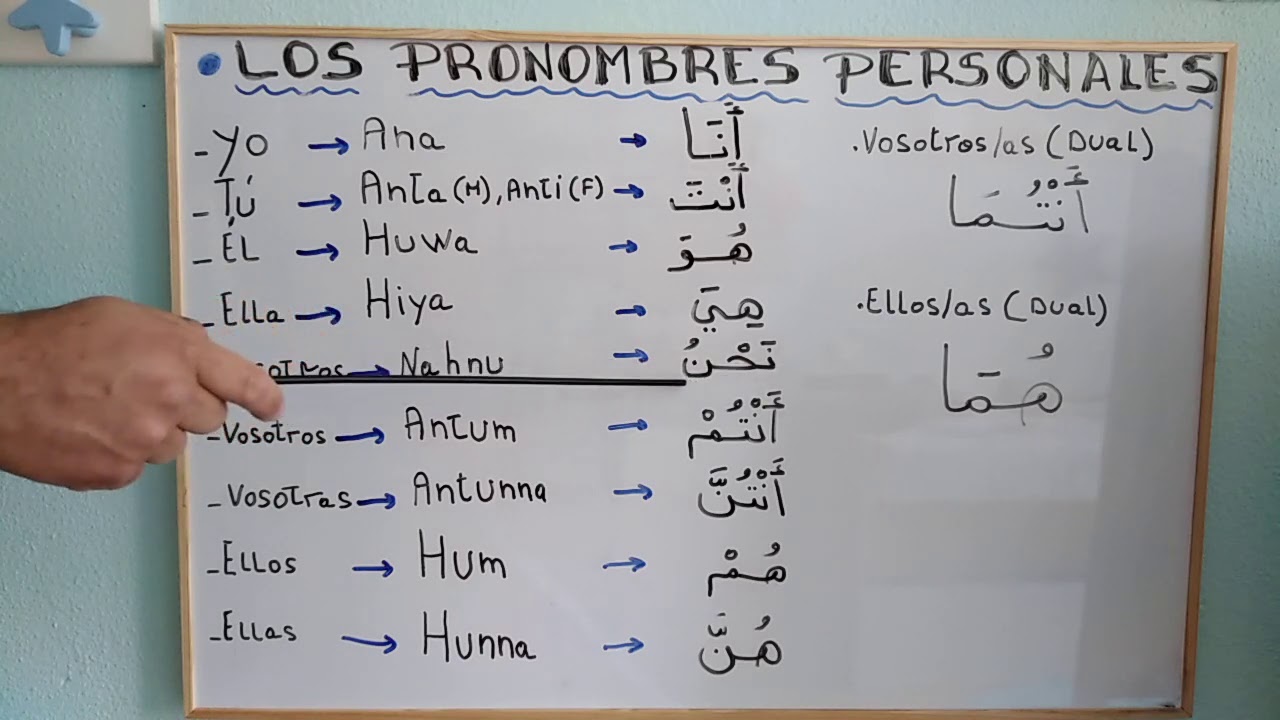 • LOS PRONOMBRES PERSONALES
- Yo → Ana → أَنَا
- Tú → Anta (M), Anti (F) → أَنْتَ
- ÉL → Huwa → هُوَ
- Ella → Hiya → هِيَ
→ Nahnu → نَحْنُ
- Vosotros → Antum → أَنْتُمْ
- Vosotras → Antunna → أَنْتُنَّ
- Ellos → Hum → هُمْ
- Ellas → Hunna → هُنَّ
. Vosotros/as (Dual)
أَنْتُمَا
. Ellos/as (Dual)
هُمَا